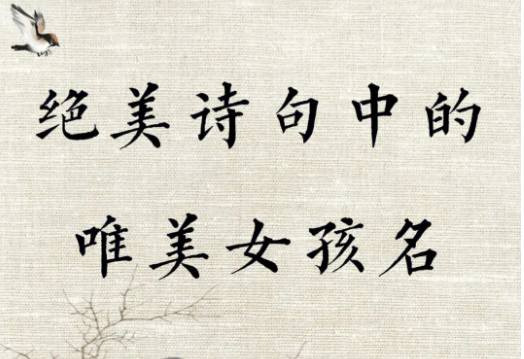 绝美诗句中的
唯美女孩名